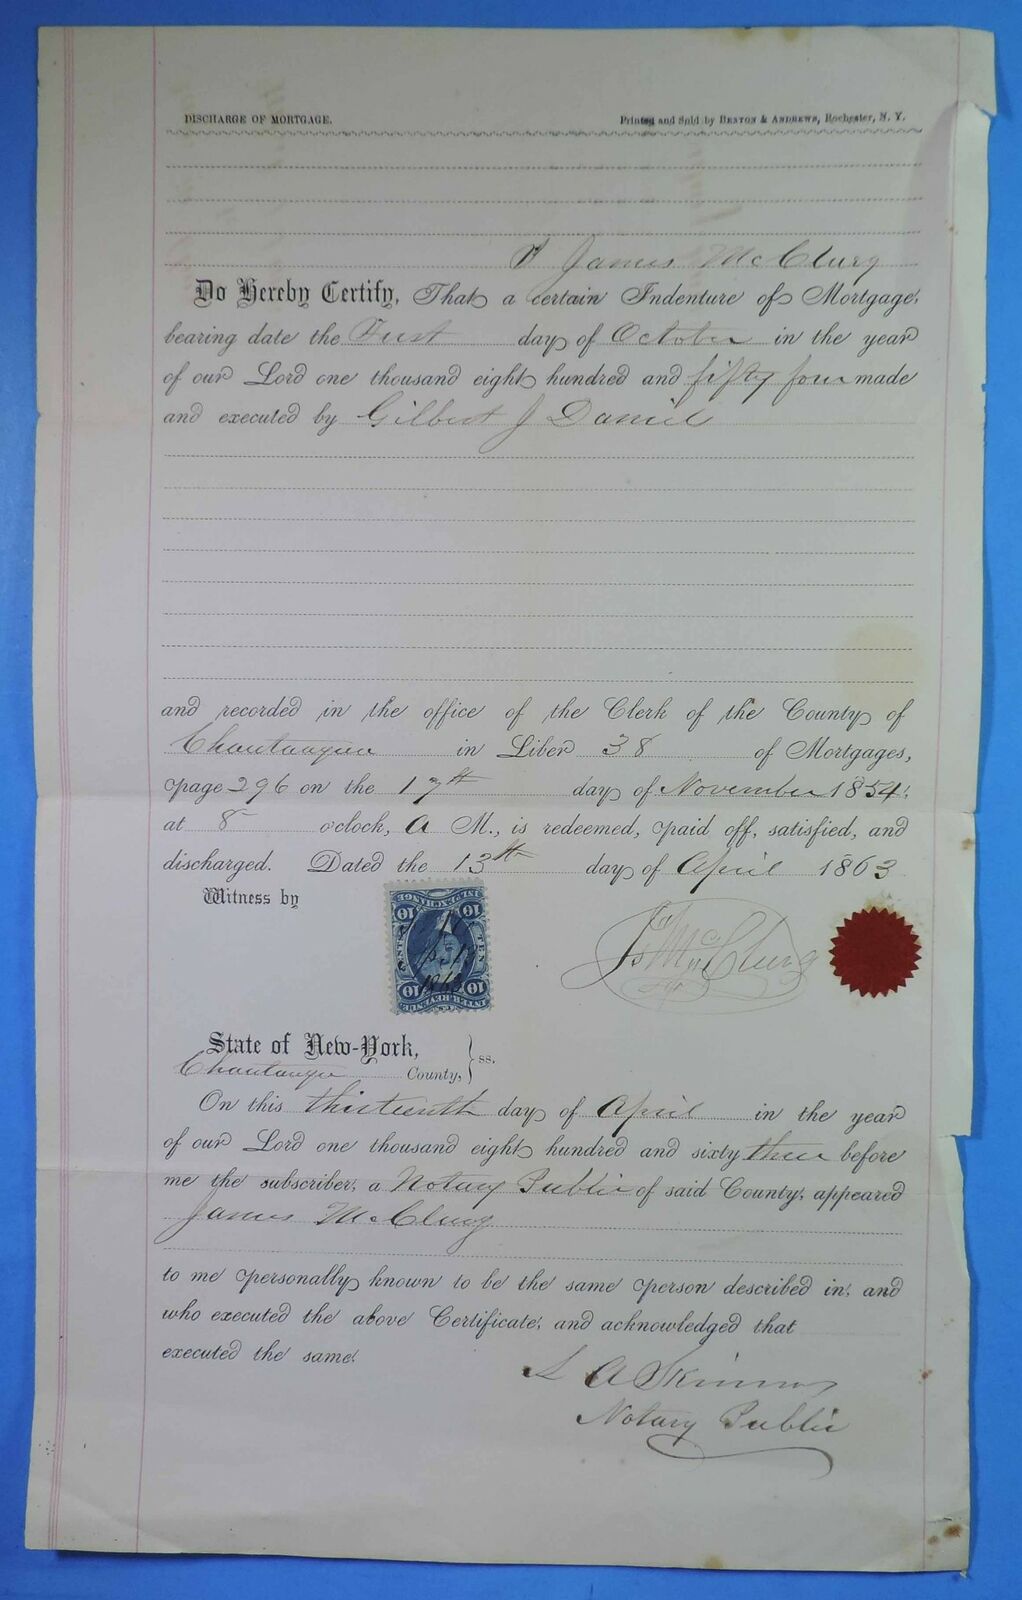 DISCHARGE OF MORTGAGE. Printed and Sold by BENTON & ANDREWS, Rochester, N. Y.
I James McClurg
Do Hereby Certify, That a certain Indenture of Mortgage,
bearing date the First day of October in the year
of our Lord one thousand eight hundred and fifty four made
and executed by Gilbert J Daniel
and recorded in the office of the Clerk of the County of
Chautauque in Liber 38 of Mortgages,
page 296 on the 17th day of November 1854,
at 8 o'clock, A M., is redeemed, paid off, satisfied, and
discharged. Dated the 13th day of April 1863
Witness by
INTER. REVENUE
10 TEN CENTS 10
1863
Js McClurg
State of New-York,
Chautauque County, } ss.
On this thirteenth day of April in the year
of our Lord one thousand eight hundred and sixty three before
me the subscriber, a Notary Public of said County, appeared
James McClurg
to me personally known to be the same person described in, and
who executed the above Certificate, and acknowledged that
executed the same.
A Skinner
Notary Public